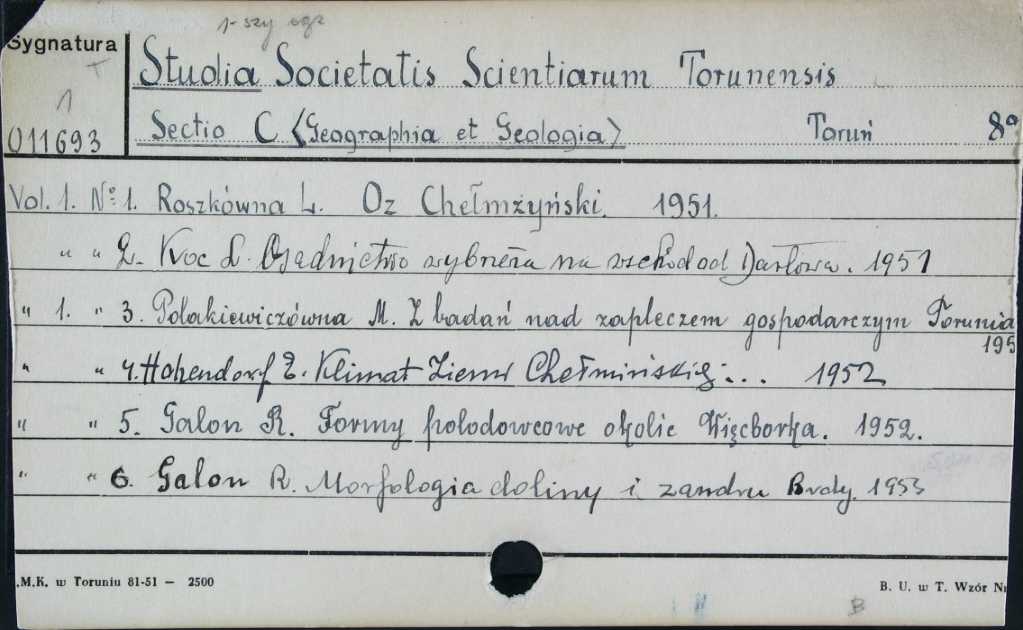 1-szy egz
Sygnatura
Studia Societatis Scientiarum Torunensis
1
011693
Sectio C (Geographia et Geologia)
Toruń 8°
Vol. 1. No 1. Roszkówna L. Oz Chełmżyński. 1951.
" " 2. Koc L. Osadnictwo wybrzeża na wschód od Darłowa. 1951
" 1. " 3. Polakiewiczówna M. Z badań nad zapleczem gospodarczym Torunia
195
" " 4. Hohendorf E. Klimat Ziemi Chełmińskiej... 1952
" " 5. Galon R. Formy polodowcowe okolic Więcborka. 1952.
" " 6. Galon R. Morfologia doliny i zandru Brdy. 1953
.M.K. w Toruniu 81-51 — 2500
B. U. w T. Wzór Nr
B